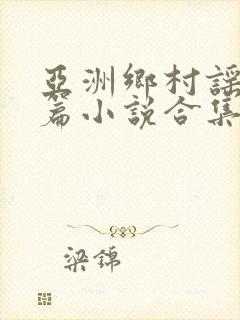 亞洲鄉村謠
篇小說合集
梁錦